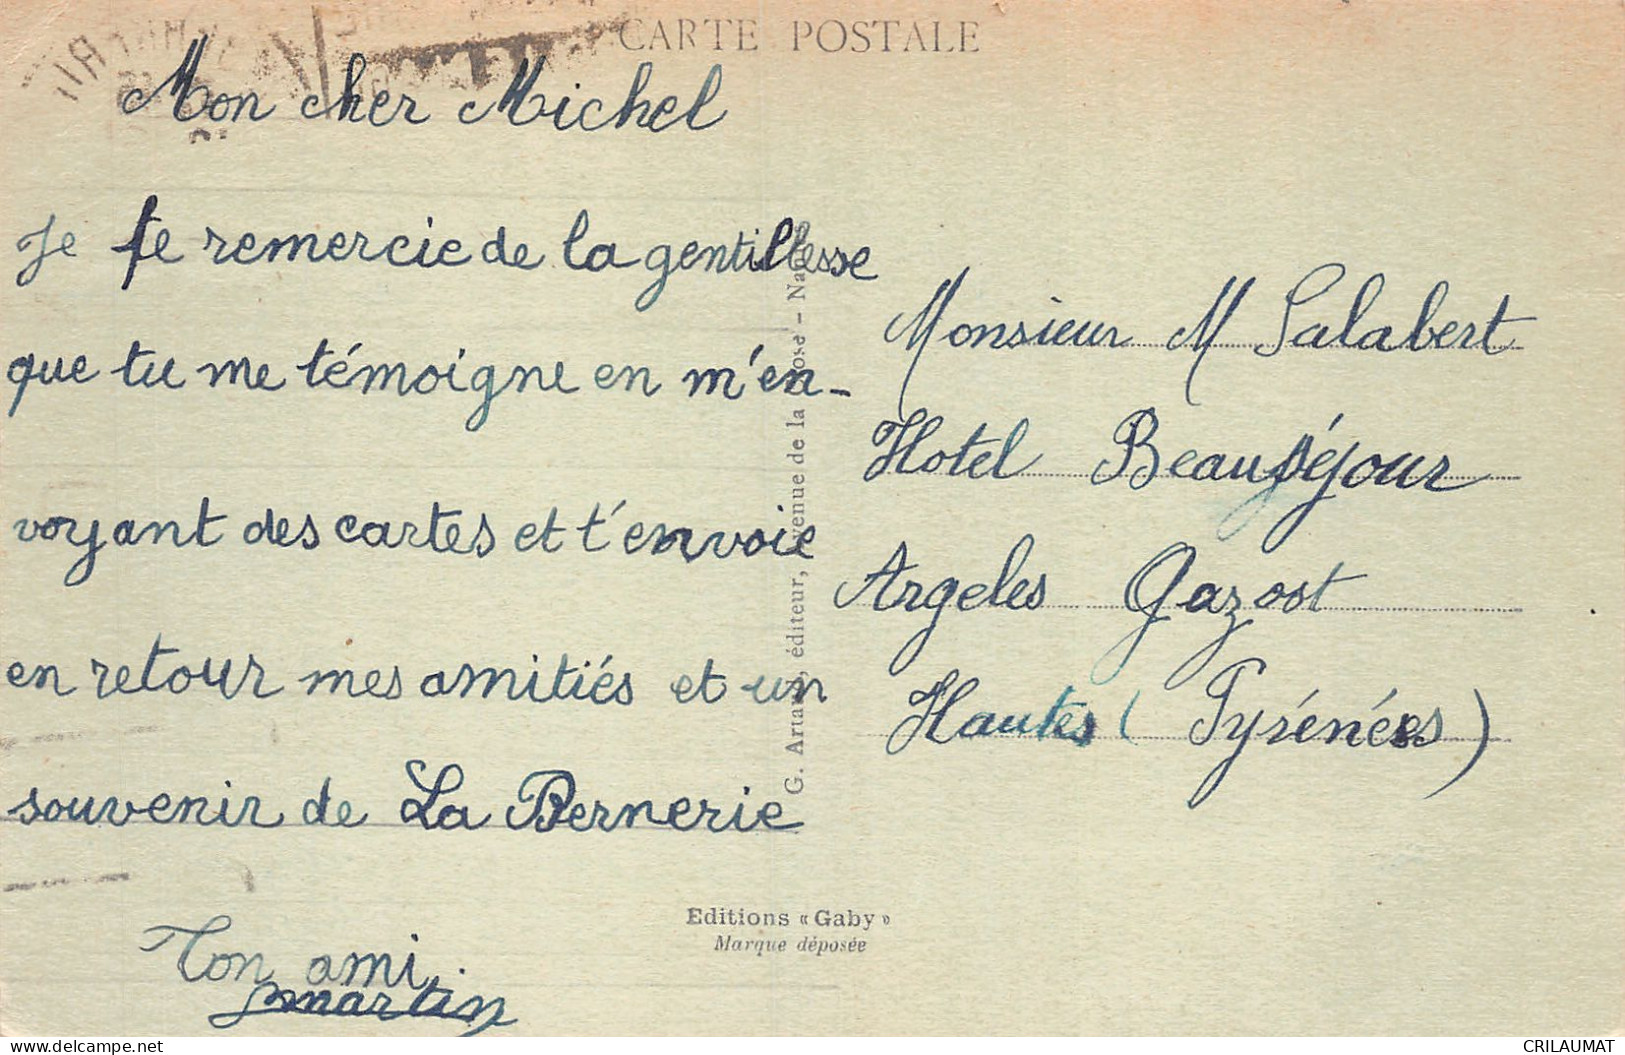 CARTE POSTALE
Mon cher Michel
Je te remercie de la gentillesse
que tu me témoigne en m'en-
voyant des cartes et t'envoie
en retour mes amitiés et un
souvenir de La Bernerie
Ton ami
martin
G. Artaud, éditeur, avenue de la Close - Nantes
Monsieur M Salabert
Hotel Beauséjour
Argeles Gazost
Hautes (Pyrénées)
Editions « Gaby »
Marque déposée
www.delcampe.net
CRILAUMAT